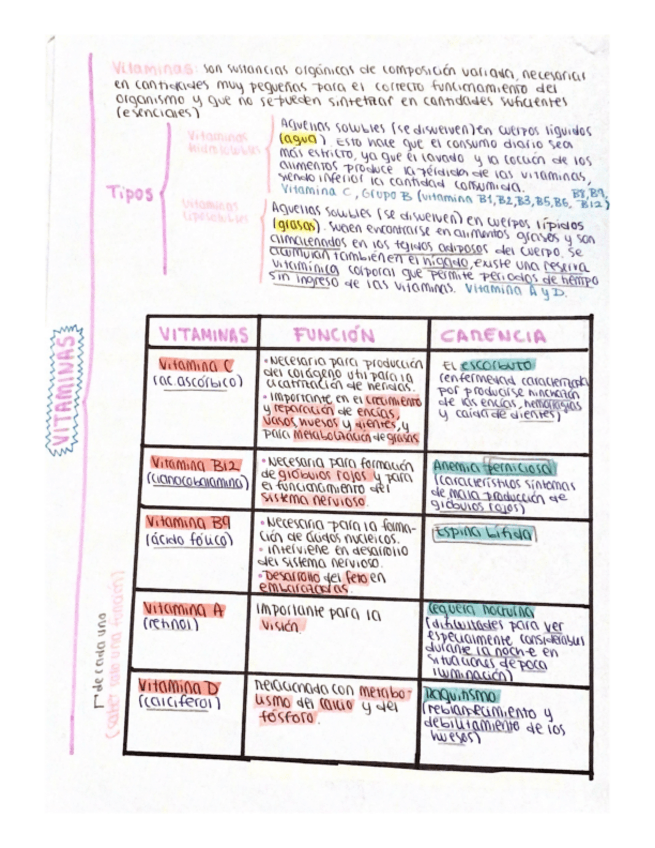 Vitaminas: son sustancias orgánicas de composición variada, necesarias
en cantidades muy pequeñas para el correcto funcionamiento del
organismo y que no se pueden sintetizar en cantidades suficientes
(esenciales)
Tipos
Vitaminas
hidrosolubles
Aquellas solubles (se disuelven) en cuerpos líquidos
(agua). Esto hace que el consumo diario sea
más estricto, ya que el lavado y la cocción de los
alimentos produce la pérdida de las vitaminas,
siendo inferior la cantidad consumida.
Vitamina C, Grupo B (vitamina B1, B2, B3, B5, B6, B8, B9, B12)
Vitaminas
liposolubles
Aquellas solubles (se disuelven) en cuerpos lípidos
(grasas). Suelen encontrarse en alimentos grasos y son
almacenados en los tejidos adiposos del cuerpo. Se
acumulan también en el hígado, existe una reserva
vitamínica corporal que permite periodos de tiempo
sin ingreso de las vitaminas. Vitamina A y D.
VITAMINAS
VITAMINAS
FUNCIÓN
CARENCIA
Vitamina C
(ac. ascórbico)
• Necesaria para producción
del colágeno util para la
cicatrización de heridas.
• Importante en el crecimiento
y reparación de encías,
vasos, huesos y dientes, y
para metabolización de grasas
El escorbuto
(enfermedad caracterizada
por producirse hinchazón
de las encías, hemorragias
y caída de dientes)
Vitamina B12
(cianocobalamina)
• Necesaria para formación
de glóbulos rojos y para
el funcionamiento del
sistema nervioso.
Anemia perniciosa
(característicos síntomas
de mala producción de
glóbulos rojos)
Vitamina B9
(ácido fólico)
• Necesaria para la forma-
ción de ácidos nucleicos.
• Interviene en desarrollo
del sistema nervioso.
• Desarrollo del feto en
embarazadas.
Espina bífida
Vitamina A
(retinol)
Importante para la
visión.
Ceguera nocturna
(dificultades para ver
especialmente considerables
durante la noche en
situaciones de poca
iluminación)
Vitamina D
(calciferol)
Relacionado con metabo-
lismo del calcio y del
fósforo.
Raquitismo
(reblandecimiento y
debilitamiento de los
huesos)
de cada uno
(saber solo una función)